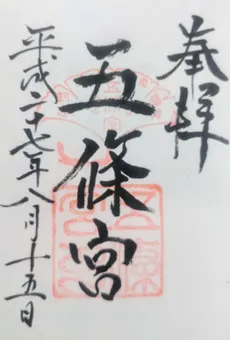 奉拝
五條宮
平成二十七年八月十五日